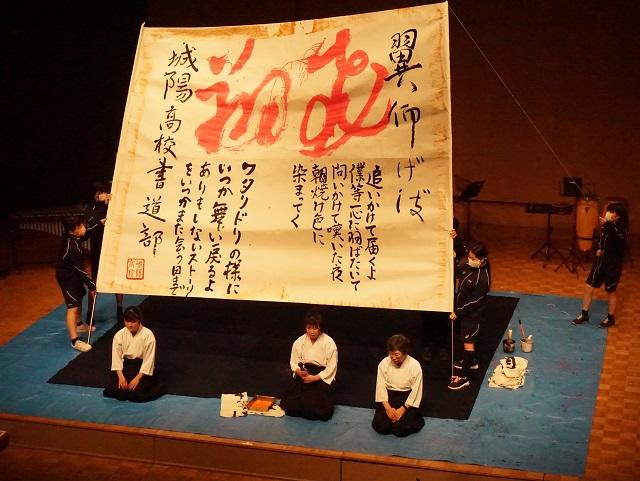 翼仰げば
追いかけて届くよ
僕等一心に羽ばたいて
問いかけて嘆いた夜
朝焼け色に
染まってく
ワタリドリの様に
いつか舞い戻るよ
ありもしないストーリー
をいつかまた会う日まで
城陽高校書道部